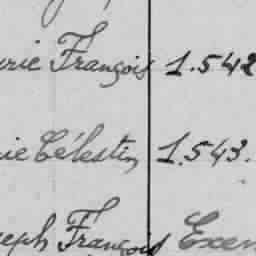 urie François 1.542
ie Célestin 1.543.
seph François Exem